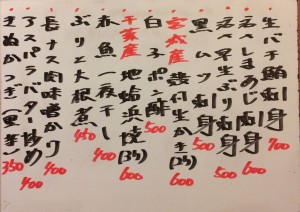 生バチ鮪刺身 700
活〆しまあじ刺身 600
活〆早生ぶり刺身 500
黒ムツ刺身 500
宮城産 殻付生かき(2ヶ) 600
白子ポン酢 500
千葉産 地蛤浜焼(3ヶ) 600
赤魚一夜干し 400
ぶりと大根煮 450
長ナス肉味噌かけ 400
アスパラバター炒め 400
きぬかつぎ(里芋) 350